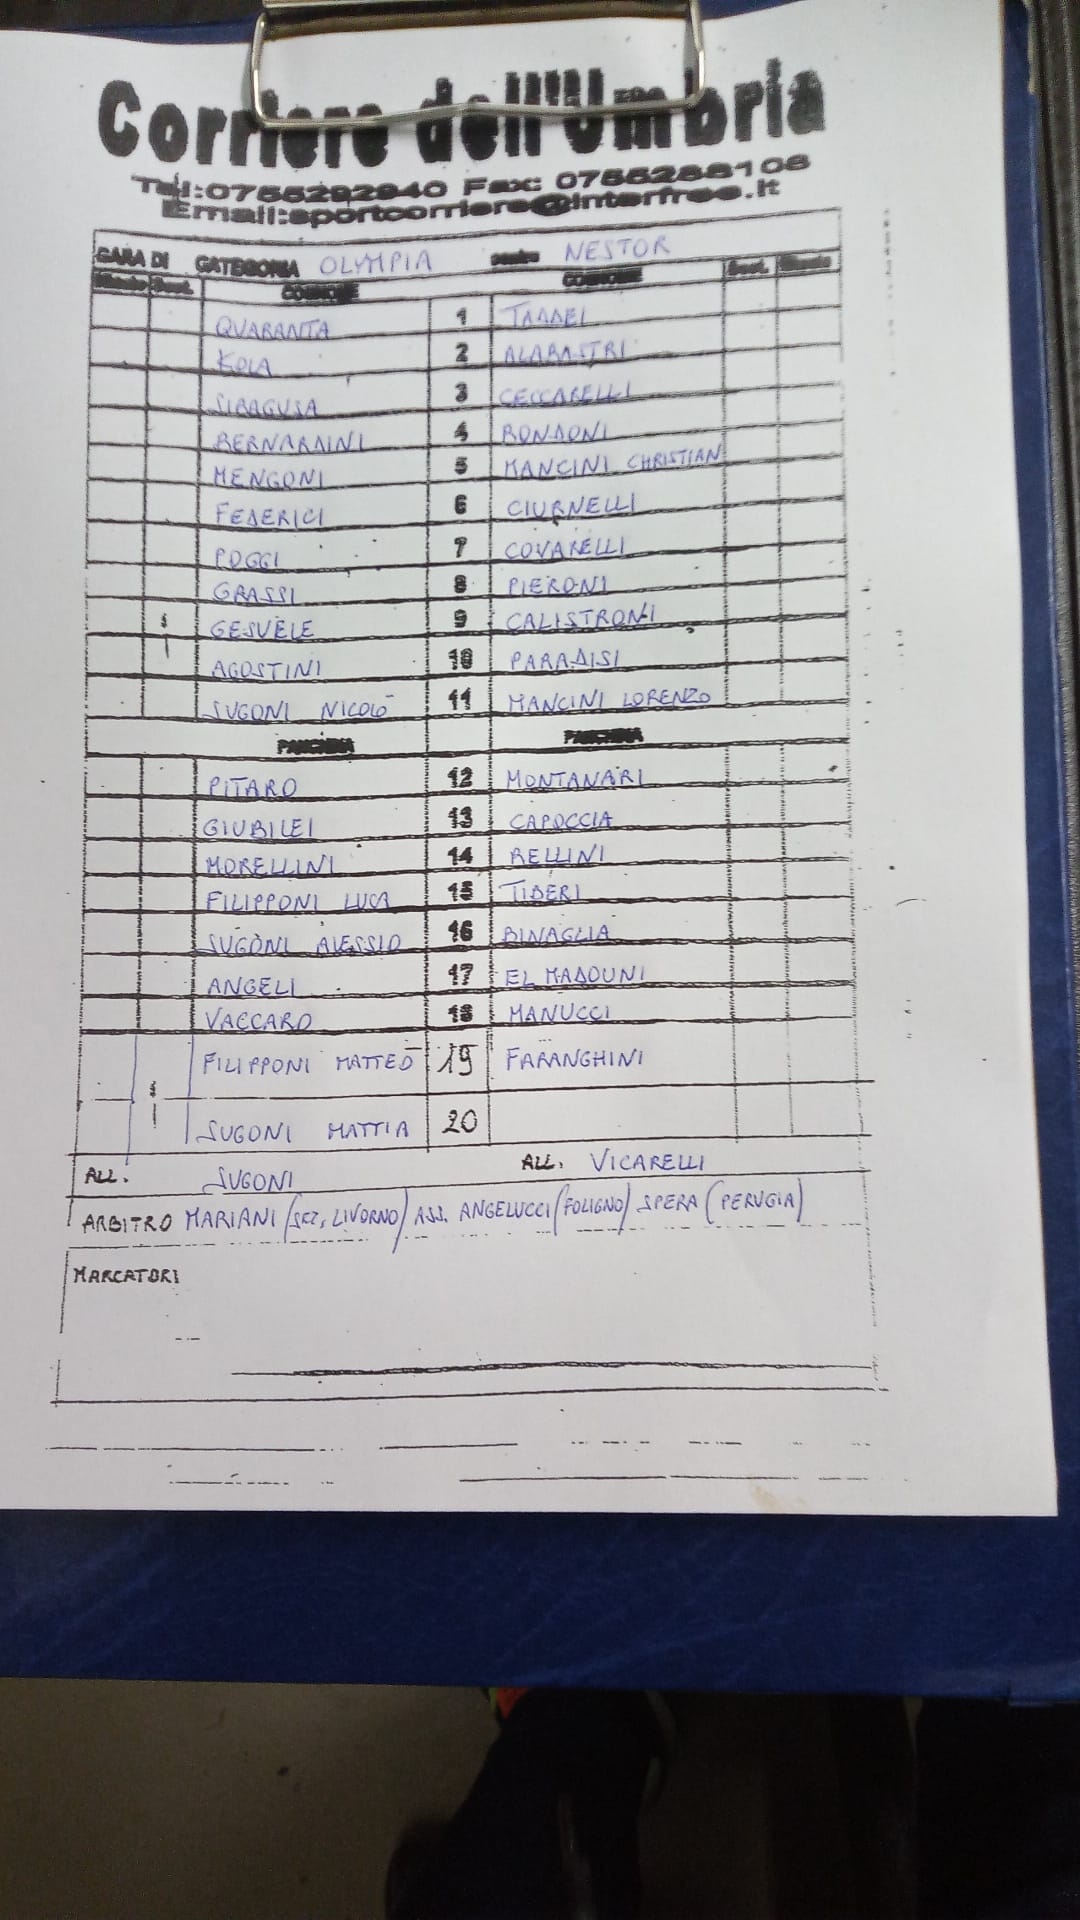 Corriere dell'Umbria
Tel:0755292940 Fax: 0755288108
Email:sportcorriere@interfree.it
GARA DI CATEGORIA OLYMPIA contro NESTOR
Minuto Sost. COGNOME COGNOME Sost. Minuto
QUARANTA 1 TADDEI
KOLA 2 ALABASTRI
SIRAGUSA 3 CECCARELLI
BERNARDINI 4 RONDONI
MENGONI 5 MANCINI CHRISTIAN
FEDERICI 6 CIURNELLI
POGGI 7 COVARELLI
GRASSI 8 PIERONI
GESUELE 9 CALISTRONI
AGOSTINI 10 PARADISI
SUGONI NICOLÒ 11 MANCINI LORENZO
PANCHINA PANCHINA
PITARO 12 MONTANARI
GIUBILEI 13 CAPOCCIA
MORELLINI 14 BELLINI
FILIPPONI LUCA 15 TIBERI
SUGONI ALESSIO 16 BINAGLIA
ANGELI 17 EL MADOUNI
VACCARO 18 MANUCCI
FILIPPONI MATTEO 19 FARANGHINI
SUGONI MATTIA 20
ALL. SUGONI ALL. VICARELLI
ARBITRO MARIANI (SEZ. LIVORNO) ASS. ANGELUCCI (FOLIGNO) SPERA (PERUGIA)
MARCATORI